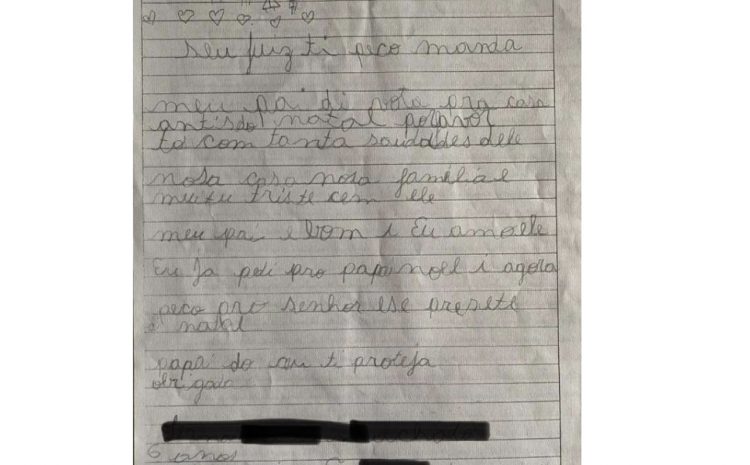 seu juiz ti peco manda
meu pai di vota pra casa
antisdo natal porfavor
to com tanta saudades dele
nosa casa nosa familia e
muitu triste cem ele
meu pai e bom i Eu amo ele
Eu Ja pedi pro papai noel i agora
peco pro senhor ese presete
di natal
papai do ceu ti proteja
obrigado
6 anos